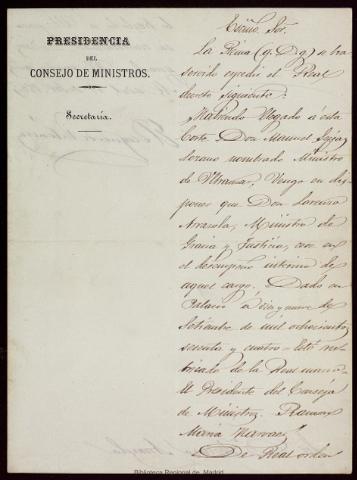 PRESIDENCIA
DEL
CONSEJO DE MINISTROS.
Secretaría.
Escmo. Sor.
La Reina (q. D. g) se ha
servido expedir el Real
decreto siguiente:
Habiendo llegado á esta
Corte Don Manuel Seijas
Lozano nombrado Ministro
de Ultramar, Vengo en dis-
poner que Don Lorenzo
Arrazola, Ministro de
Gracia y Justicia, cese en
el desempeño interino de
aquel cargo. Dado en
Palacio á de
Setiembre de mil ochocientos
sesenta y cuatro = Está rub-
ricado de la Real mano =
El Presidente del Consejo
de Ministros. Ramon
Maria Narvaez
De Real orden
Biblioteca Regional de Madrid